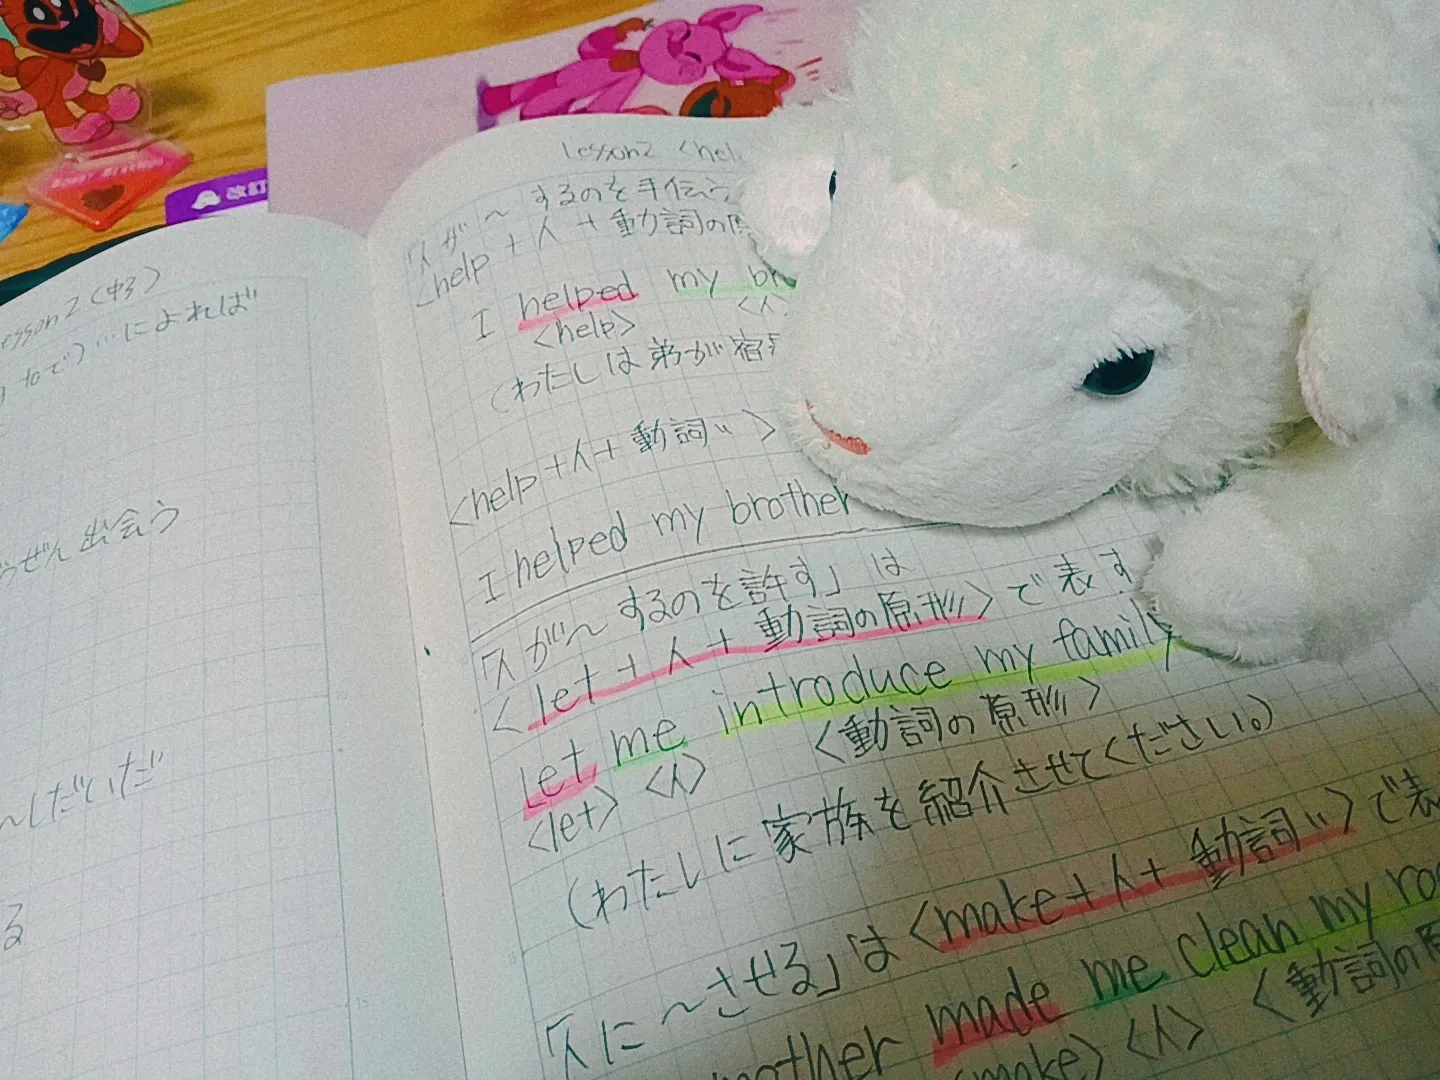 改訂
Lesson2 (中3)
…によれば
出会う
〜しだいだ
る
Lesson2 <hel
「人が〜するのを手伝う
<help + 人 + 動詞の原
I helped my br
<help> <人>
(わたしは弟が宿
<help + 人 + 動詞〃>
I helped my brother
「人が〜するのを許す」は
<let + 人 + 動詞の原形>で表す
Let me introduce my family
<let> <人> <動詞の原形>
(わたしに家族を紹介させてください。)
「人に〜させる」は<make + 人 + 動詞〃>で表
mother made me clean my roo
(make) <人> <動詞の原